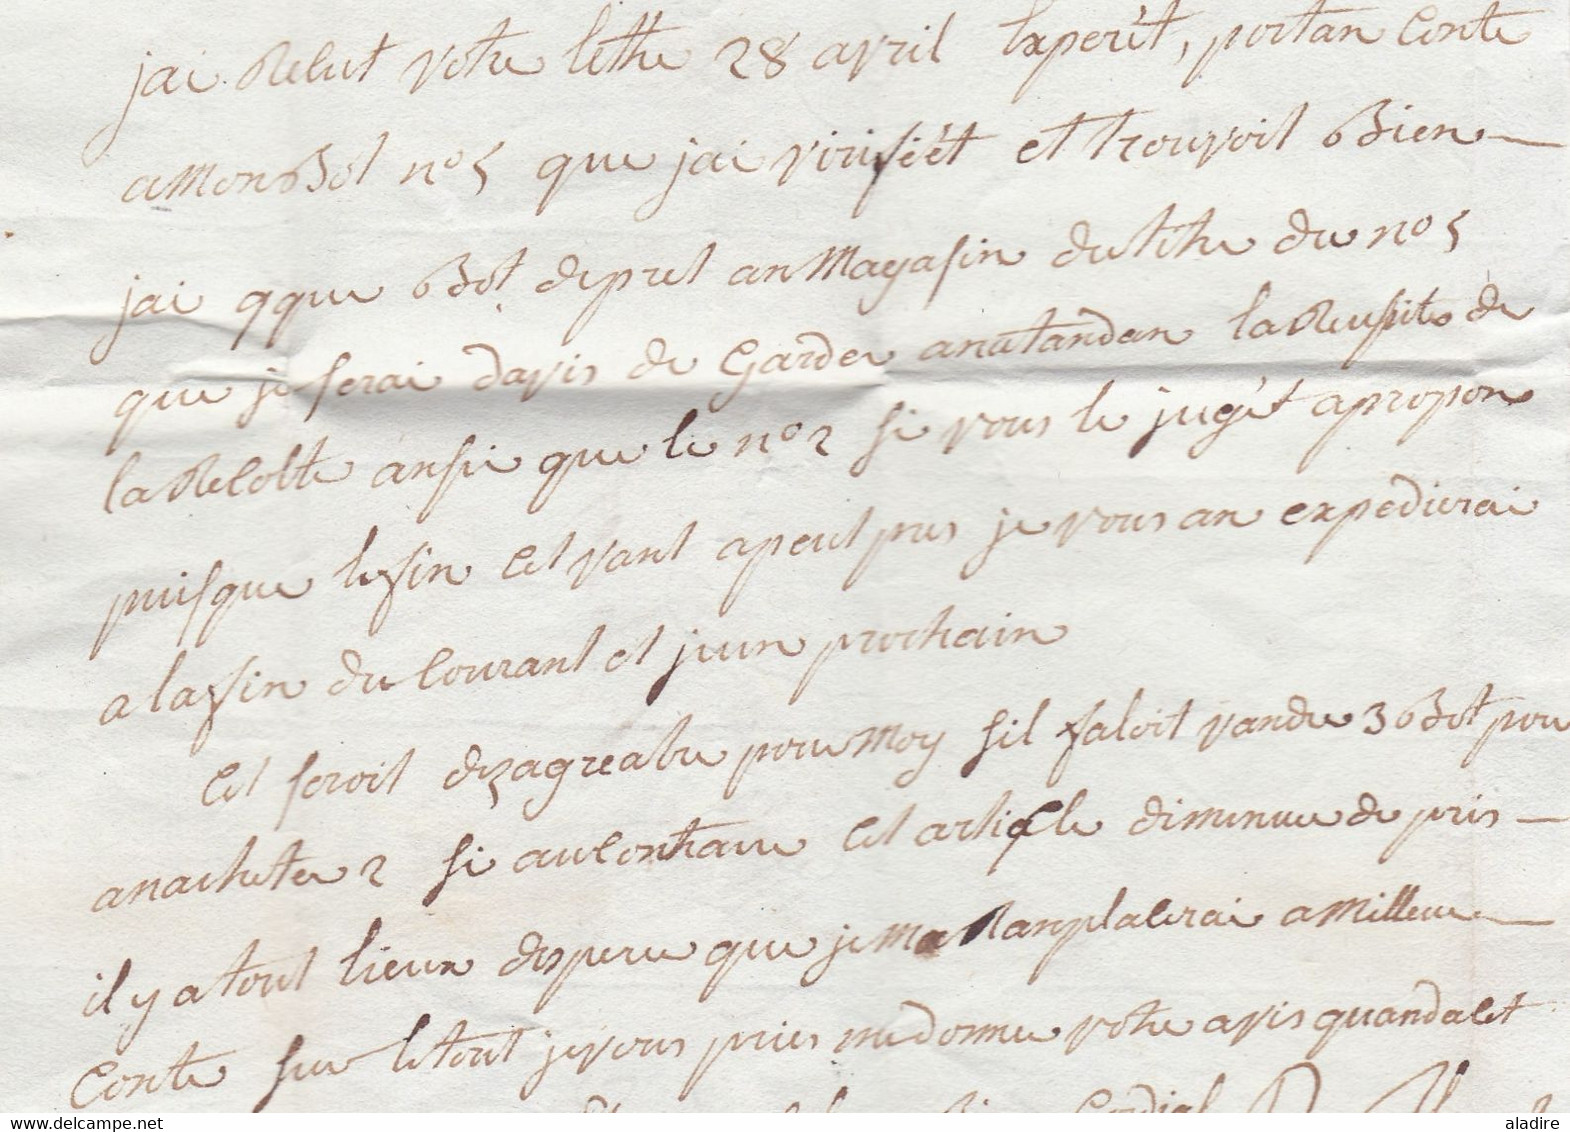 jai Relut votre lettre 28 avril Experet, portan Conte
a mon Bot n° 5 que jai virifiéét et trouvoit Bien
jai qque Bot de pret an Magasin du titre du n° 5
que je serai davis de Garder an atandan la Reusite de
la Recolte ansi que le n° 2 si vous le jugét a propon
puisque le fin Cet vant a peut pres je vous an expedierai
a la fin du Courant et juin prochain
Cet seroit dezagreable pour Moy sil faloit vandre 3 Bot pour
an acheter 2 si au Contraire Cet article diminue de pris
il y a tout lieux desperer que je Ranplacerai a Milleur
Conte sur le tout je vous pries me donner votre avis quand a Cet
Cordial
aladire